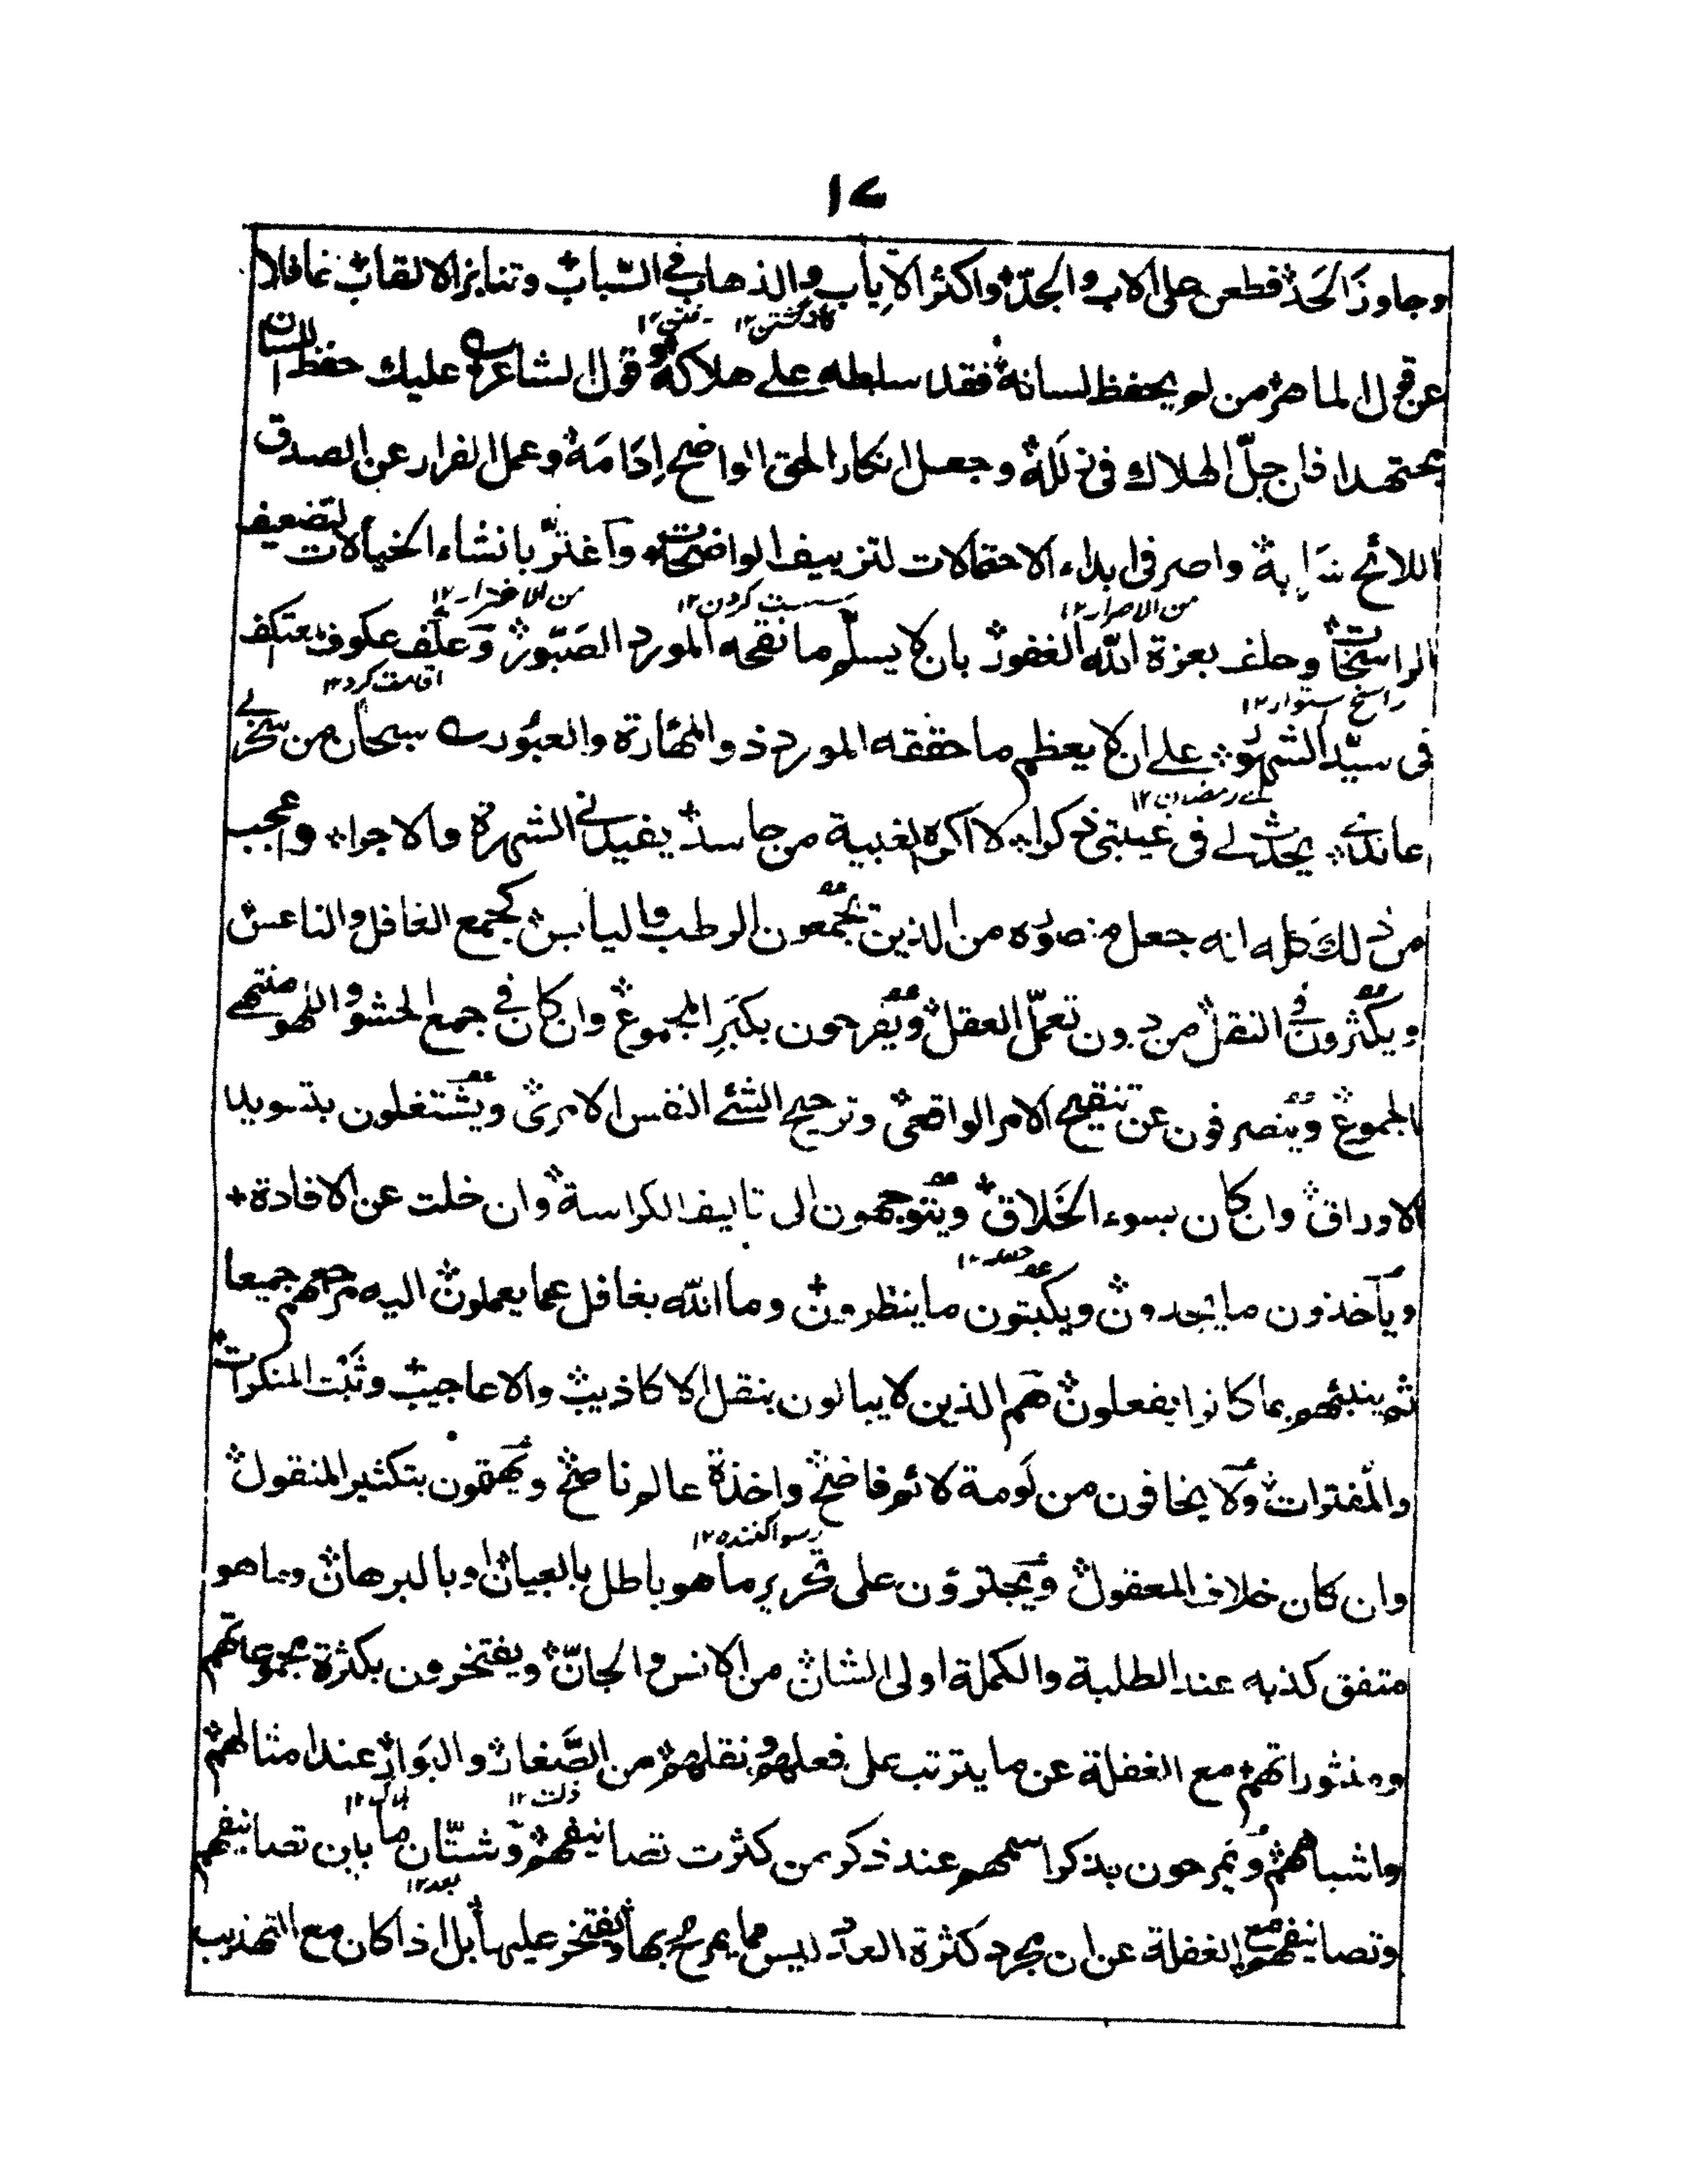 ١٧
وجاوزَ الحَدّ فطعن على الاب والجدّ واكثر الاِياب والذهاب في السّباب وتنابز الالقاب غافلا
عن قول الماهر من لم يحفظ لسانه فقد سلطه على هلاكه وقول الشاعر عليك حفظ اللسان
مجتهدا فان جلّ الهلاك في زلله وجعل انكار الحق الواضح اِدَامَه وعمل الفرار عن الصدق
اللائح واصر فى ابداء الاحتمالات لتزييف الواضحات واغترّ بانشاء الخيالات لتضعيف
من الاصرار ١٢ سست كردن ١٢ من الاغترار ١٢
الراسخات وحلف بعزة الله الغفور بان لا يسلّم ما نقحه المورد الصَبّور وعكف عكوف معتكف
راسخ ستوار ١٢
فى سيّد الشهور على ان لا يعظم ما حققه المورد ذو المهارة والعبُور سبحان من سخر لے
رمضان ١٢
عاندى يحدث لے فى غيبتى ذكرا لا اكره الغيبة من حاسد يفيدنى الشهرة والاجرا واعجب
من ذلك كله انه جعل منصوره من الذين يجمعون الرطب واليابس كجمع الغافل والناعس
ويكثرون فى النقل من دون تعمّل العقل ويفرحون بكبَرِ المجموع وان كان في جمع الحشو واللهو منتهى
الجموع وينصرفون عن تنقيح الامر الواقعى وترجيح الشئ النفس الامرى ويشتغلون بتسويد
الاوراق وان كان بسوء الخَلاق ويتوجهون الى تاليف الكراسة وان خلت عن الافادة
وياخذون ما يجدون ويكتبون ما ينظرون وما الله بغافل عما يعملون اليه مرجعهم جميعا
ثم ينبئهم بما كانوا يفعلون هم الذين لا يبالون بنقل الاكاذيب والاعاجيب وثَبْت المنكرات
والمفتوات ولا يخافون من لَومة لائم فاضح واخذة عالم ناصح ويهتمون بتكثير المنقول
رسوا كننده ١٢
وان كان خلاف المعقول ويجترؤن على تحرير ما هو باطل بالعيان او بالبرهان وما هو
متفق كذبه عند الطلبة والكملة اولى الشان من الانس والجانّ ويفتخرون بكثرة مجموعاتهم
ومنثوراتهم مع الغفلة عن ما يترتب على فعلهم ونقلهم من الصَّغار والبَوار عند امثالهم
ذلت ١٢ هلاك ١٢
واشباههم ويمرحون بذكر اسمهم عند ذكر من كثرت تصانيفهم وشتّان ما بين تصانيفهم
بعد ١٢
وتصانيفهم مع الغفلة عن ان مجرد كثرة العدد ليس مما يمرح بها ويفتخر عليها بل اذا كان مع التهذيب